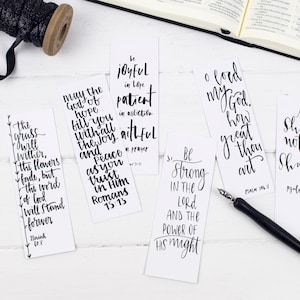 the
grass
will
wither,
the flowers
fade, but
the word
of God
will stand
forever
Isaiah
40:8
may the
God of
hope
fill you
with all
the joy
and
peace
as you
trust
in Him
Romans
15:13
be
joyful
in hope
patient
in affliction
faithful
in prayer
Be
strong
IN THE
Lord
AND THE
POWER OF
HIS might
O Lord
my
God,
how
great
thou
art
PSALM
S
not
Sha